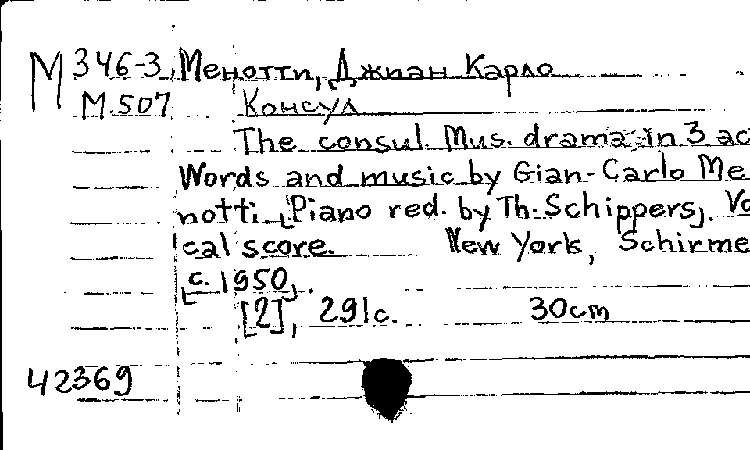 М 346-3 Менотти, Джиан Карло
М 507 Консул
The consul. Mus. drama in 3 ac
Words and music by Gian-Carlo Me
notti. [Piano red. by Th. Schippers]. Vo
cal score. New York, Schirme
[c. 1950].
[2], 291c. 30cm
42369